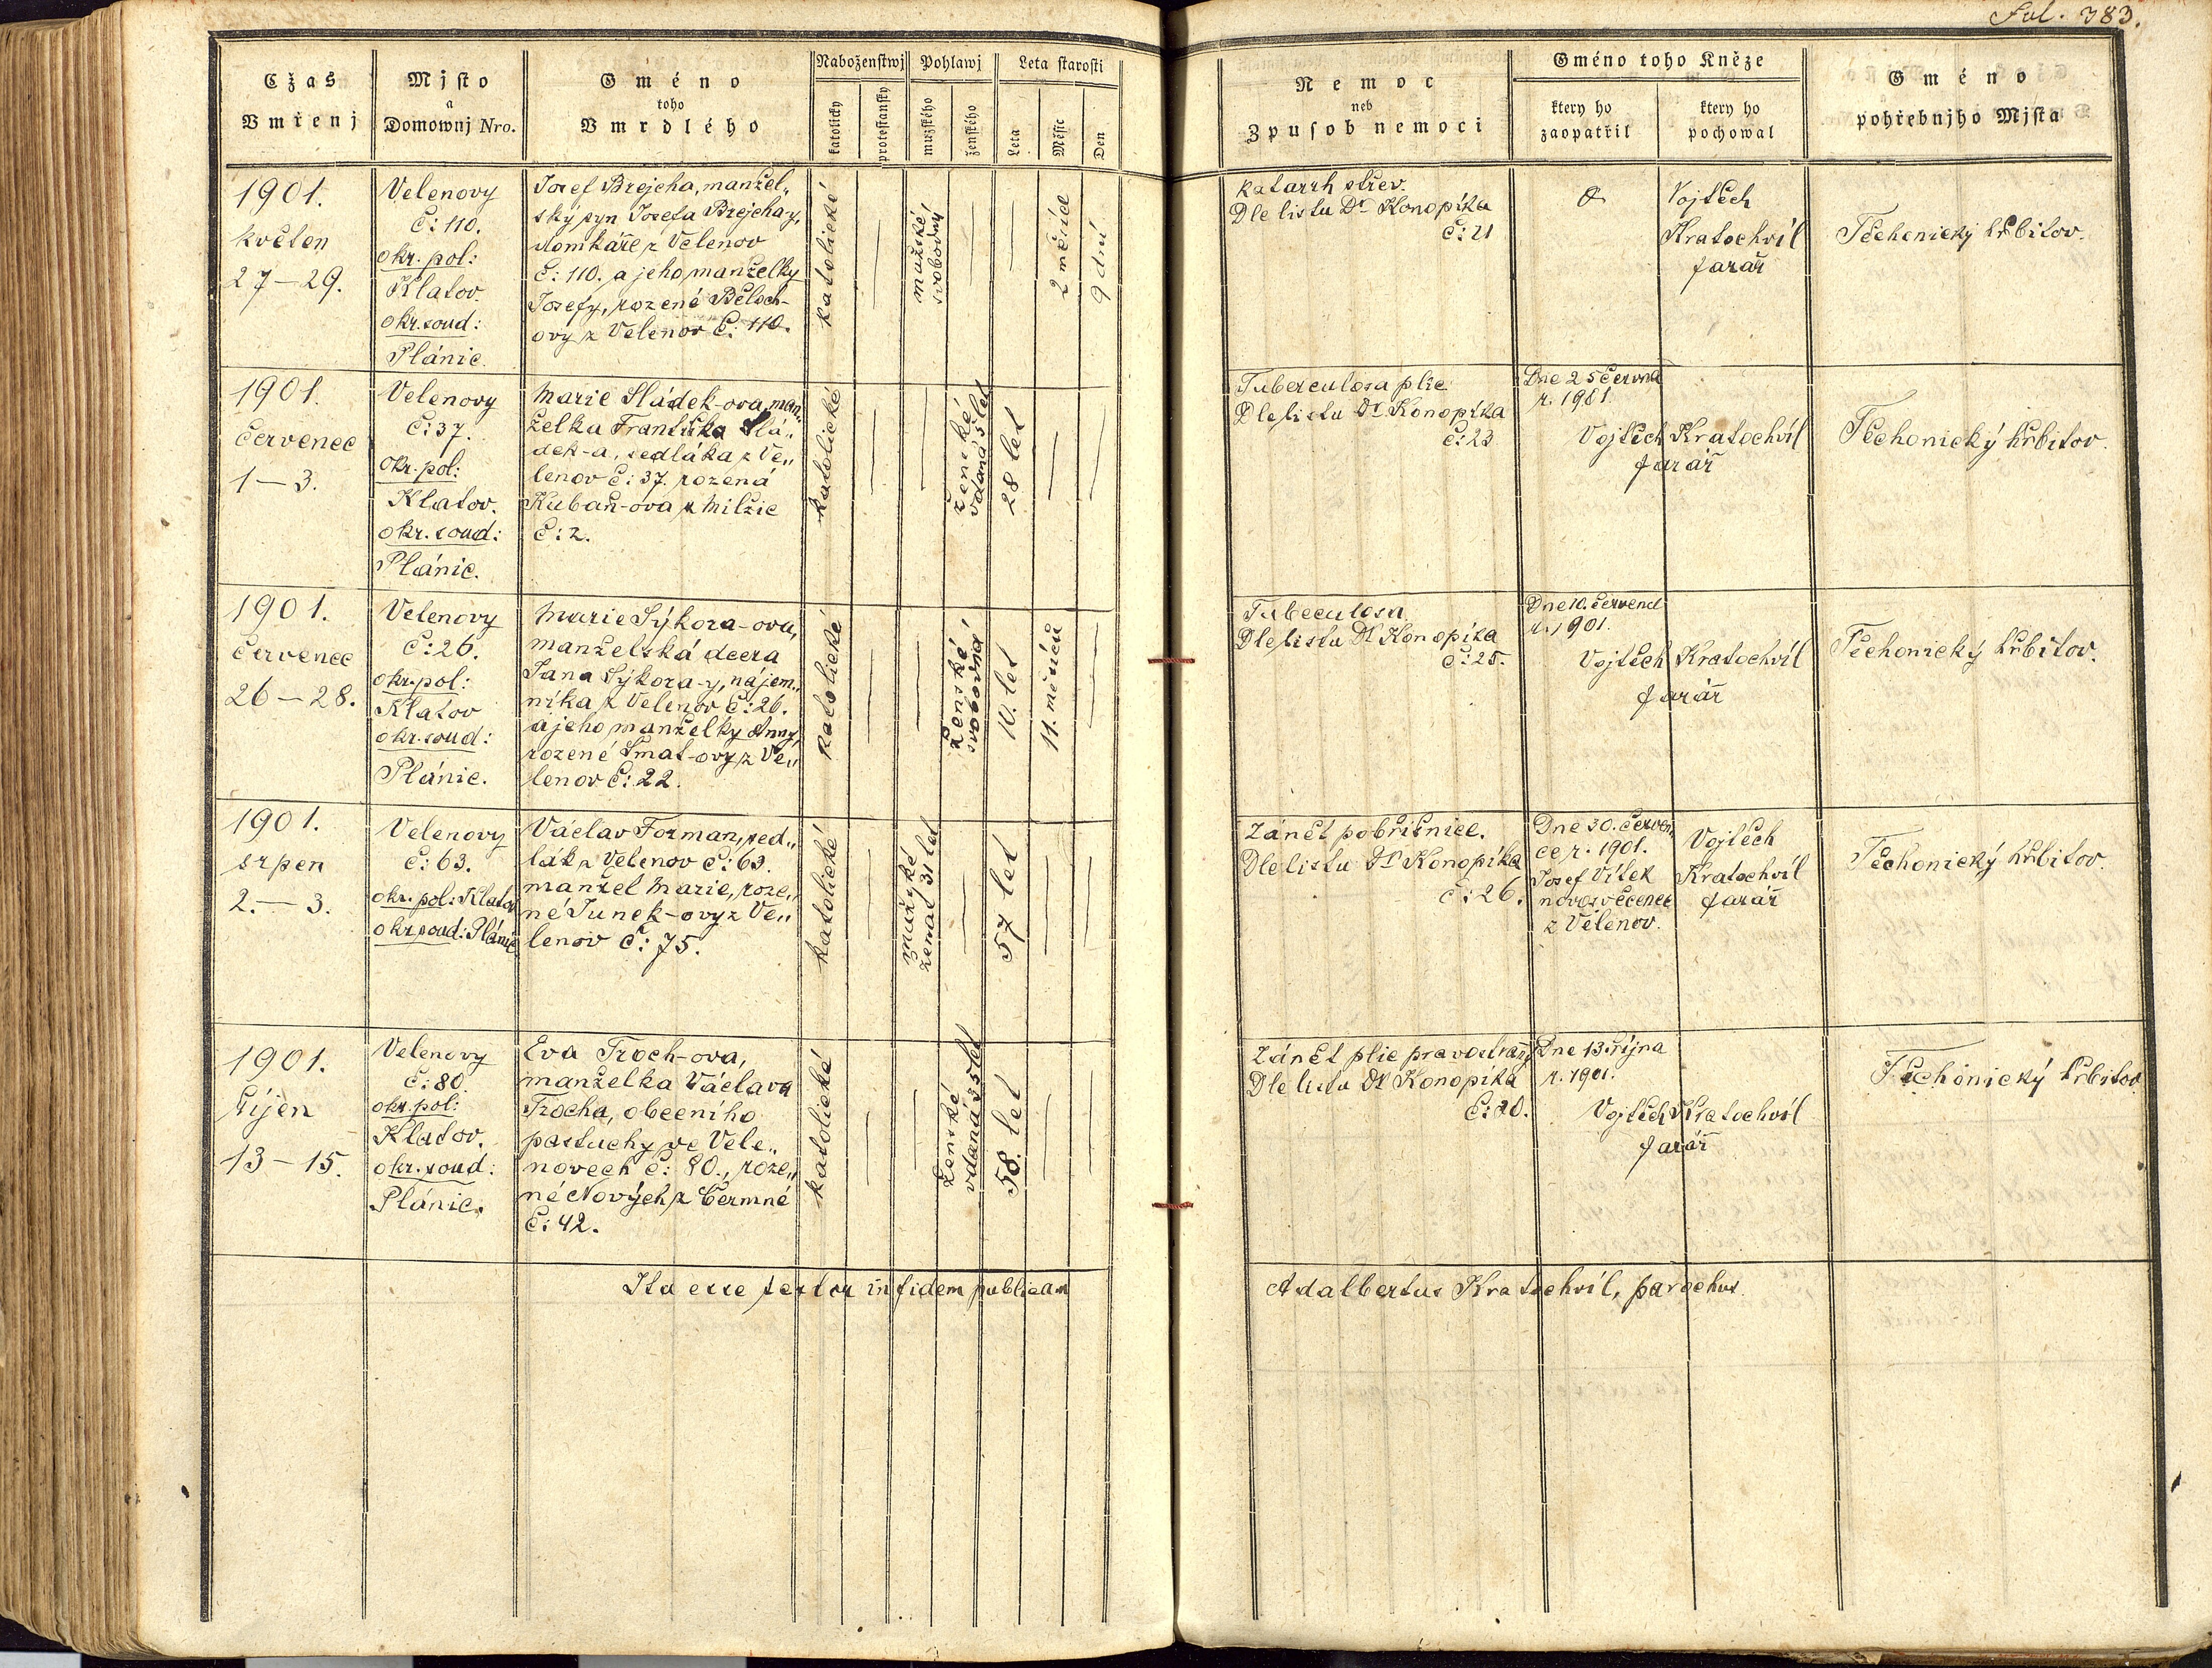 Fol. 383.
Cžas
Vmřenj
Mjsto
a
Domownj Nro.
Gméno
toho
Vmrdlého
Náboženstwj
katolický
protestanský
Pohlawj
mužského
ženského
Leta starosti
Leta
Měsíc
Den
Nemoc
neb
Zpusob nemoci
Gméno toho Kněze
ktery ho
zaopatřil
ktery ho
pochowal
Gméno
pohřebnjho Mjsta
1901.
květen
27–29.
Velenovy
Č: 110.
okr. pol:
Klatov.
okr. soud:
Plánic.
Josef Brejcha, manžel„
ský syn Josefa Brejcha-y,
domkáře z Velenov
č: 110. a jeho manželky
Josefy, rozené Běloch-
ovy z Velenov č: 110.
katolické
—
mužské
svobodný
—
—
2 měsíce
9 dní
Katarrh střev.
Dle listu Dr Konopíka
č: 21
Vojtěch
Kratochvíl
farář
Těchonický hřbitov.
1901.
červenec
1–3.
Velenovy
č: 37.
okr. pol:
Klatov.
okr. soud:
Plánic.
Marie Sládek-ova, man„
želka Františka Slá„
dek-a, sedláka z Ve„
lenov č: 37. rozená
Kubaň-ova z Milžic
č: 2.
katolické
—
—
ženské
vdaná 5 let
28 let
—
—
Tuberculosa plic
Dle listu Dr Konopíka
č: 23
Dne 25 června
r. 1901.
Vojtěch Kratochvíl
farář
Těchonický hřbitov.
1901.
červenec
26–28.
Velenovy
č: 26.
okr. pol:
Klatov
okr. soud:
Plánic.
Marie Sýkora-ova,
manželská dcera
Jana Sýkora-y, nájem„
níka z Velenov č: 26.
a jeho manželky Anny,
rozené Šmat-ovy z Ve„
lenov č: 22.
katolické
—
—
ženské
svobodná
10. let
11. měsíců
—
Tubeculosa
Dle listu Dr Konopíka
č: 25.
Dne 10. července
r. 1901.
Vojtěch Kratochvíl
farář
Těchonický hřbitov.
1901.
srpen
2.–3.
Velenovy
č: 63.
okr. pol: Klatov
okr. soud: Plánic
Václav Forman, sed„
lák z Velenov č: 63.
manžel Marie, roze„
né Junek-ovy z Ve„
lenov č: 75.
katolické
—
mužské
ženat 31 let
—
57 let
—
—
Zánět pobřišnice.
Dle listu Dr Konopíka
č: 26.
Dne 30. červen„
ce r. 1901.
Josef Vítek
novosvěcenec
z Velenov.
Vojtěch
Kratochvíl
farář
Těchonický hřbitov.
1901.
říjen
13–15.
Velenovy
č: 80.
okr. pol:
Klatov.
okr. soud:
Plánic.
Eva Troch-ova,
manželka Václava
Trocha, obecního
pastuchy ve Vele„
novech č: 80., roze„
né Nových z Čermné
č: 42.
katolické
—
—
ženské
vdaná 35 let
58. let
—
—
Zánět plic pravostraný
Dle listu Dr Konopíka
č: 20.
Dne 13. října
r. 1901.
Vojtěch Kratochvíl
farář
Těchonický hřbitov
Ita esse testor in fidem publicam
Adalbertus Kratochvíl, parochus.